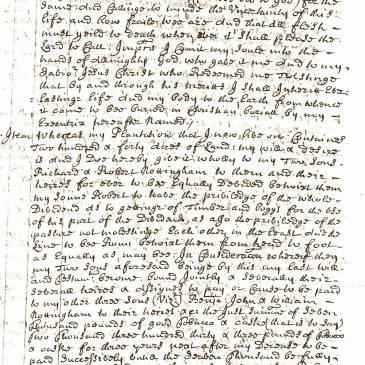 same and Calling to minde the Uncertainty of this
life and how fraile wee are and that all flesh
must yeild to death when ever it shall please the
Lord to Call: Impris I Comit my soule into the
hands of allmighty God who gave it me and to my
Savior Jesus Christ who Redeemed me trustinge
that by and through his meritts I shall Inheritt Ever
lastinge life and my body to the Earth from whence
it came to bee buried in Christian buriall by my
Executrix hereafter Named;
Item Whereas my Plantation that I now live on Containes
Two hundred & forty Acres of Land: my will & desire
is and I Doe hereby give it wholly to my Two Sons
Richard & Robert Nottingham to them and their
heires for ever to bee Equally Devided betwixt them
my sonne Robert to have the priviledge of the whole
Dividend as to gettinge of Timber and for the use
of his part of the Dividend, as also the priviledge of the
pasture not molestinge Each other in the least and the
Line to bee Runn betwixt them from head to foot
as Equally as may bee In Consideration whereof then
my Two Sons aforesaid beinge by this my last will
and Testament become bound Joyntly & severally their
severall heires & assignes to pay or Cause to be paid
to my other three sons (Viz) Benja John & William
Nottingham to their heires &c the Just summe of Seven
Thousand pounds of good Tobacco & Caske (that is to say)
Two Thousand three hundred thirty & three pounds of Tobacco
& caske for three yeares next after my Decease to be
paid Successively untill the Seaven Thousand be fully